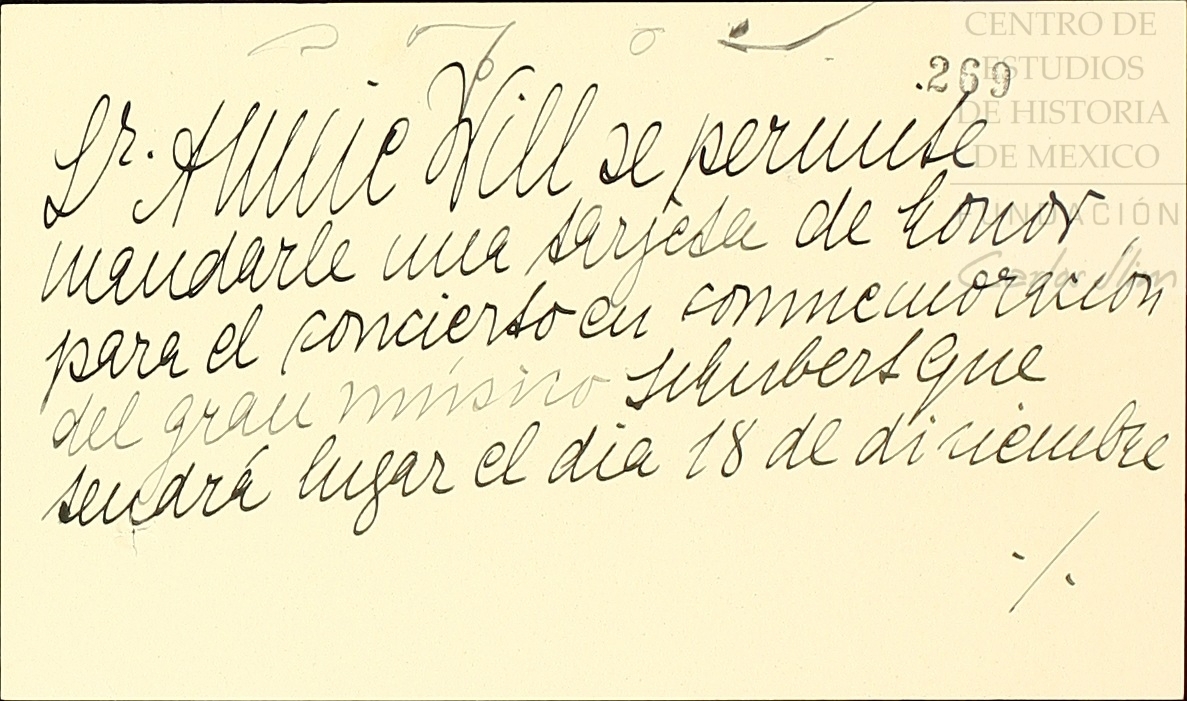 .269
CENTRO DE
ESTUDIOS
DE HISTORIA
DE MEXICO
FUNDACIÓN
Carlos Slim
Sr. Annie Will se permite
mandarle una tarjeta de honor
para el concierto en conmemoración
del gran músico Schubert que
tendrá lugar el dia 18 de diciembre
./.